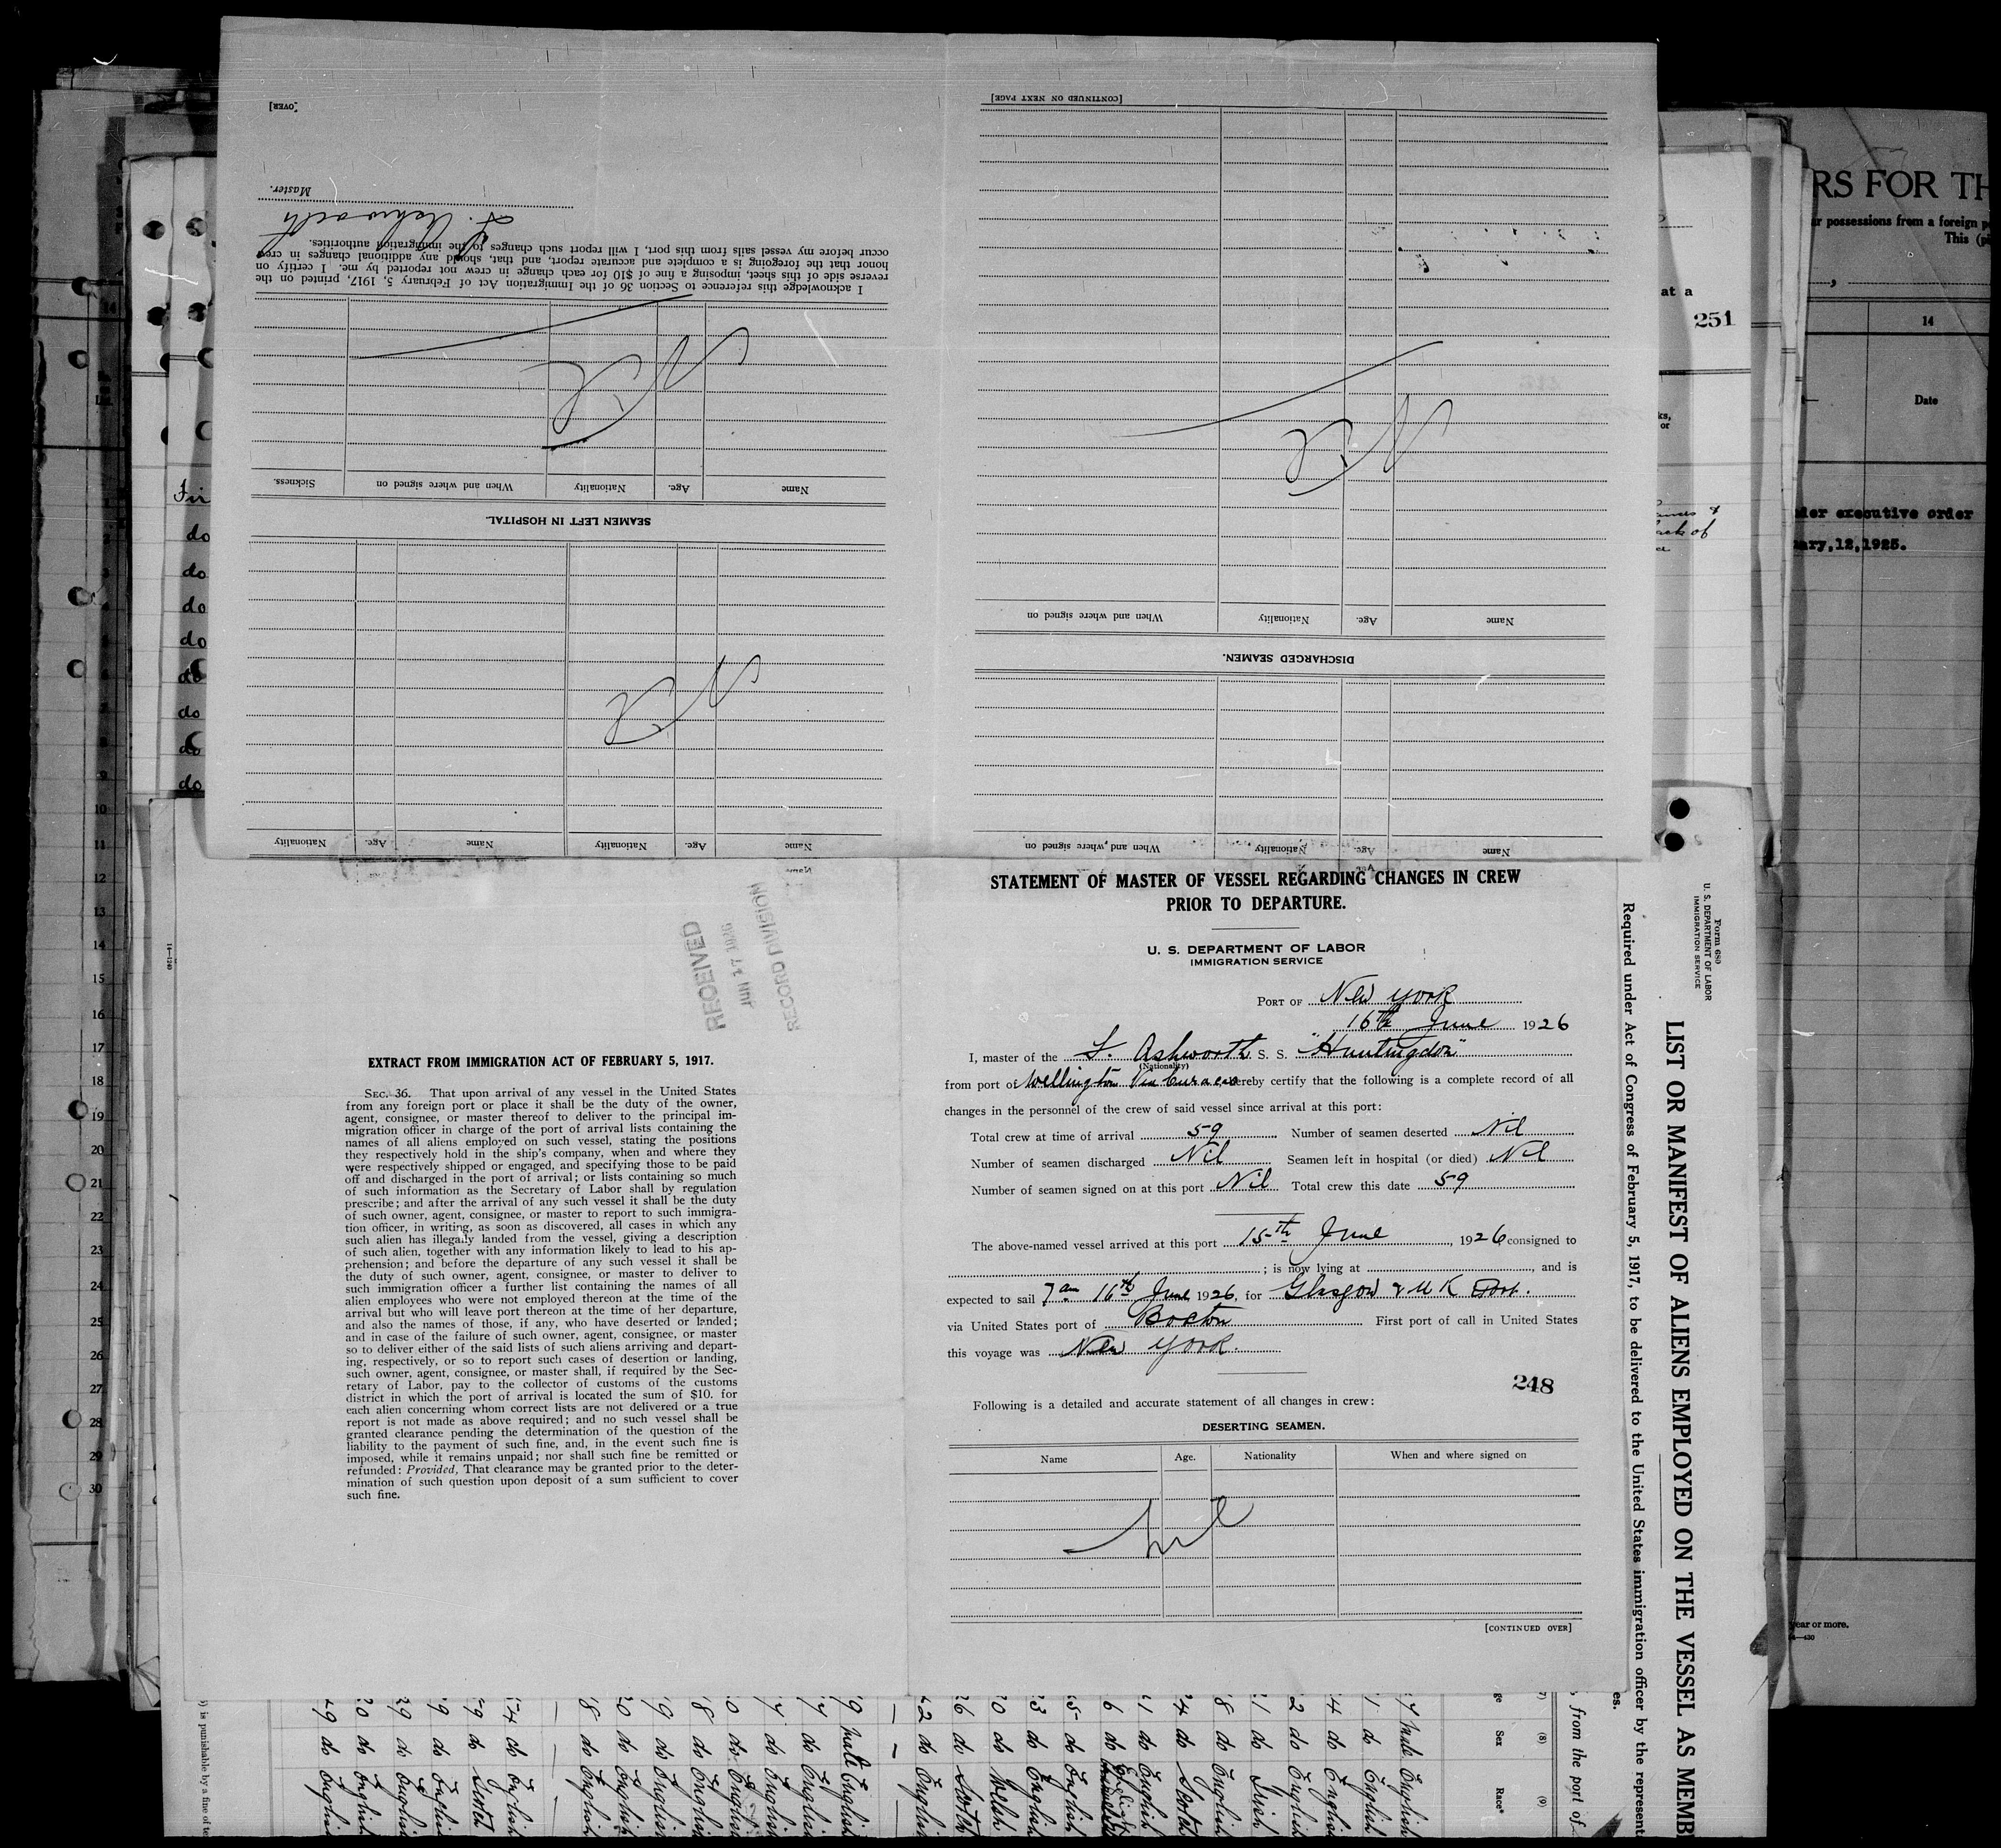 [OVER]
Master.
Ashworth
I acknowledge this reference to Section 36 of the Immigration Act of February 5, 1917, printed on the
reverse side of this sheet, imposing a fine of $10 for each change in crew not reported by me. I certify on
honor that the foregoing is a complete and accurate report, and that, should any additional changes in crew
occur before my vessel sails from this port, I will report such changes to the immigration authorities.
Nil
Name Age. Nationality When and where signed on Sickness.
SEAMEN LEFT IN HOSPITAL.
Nil
Name Age. Nationality Name Age. Nationality
[CONTINUED ON NEXT PAGE]
Nil
Name Age. Nationality When and where signed on
DISCHARGED SEAMEN.
Name Age. Nationality When and where signed on
RS FOR TH
possessions from a foreign
This
at a
251
14
Date
executive order
12, 1925.
ack of
do
do
do
do
do
do
do
do
10
11
12
13
14
15
16
17
18
19
20
21
22
23
24
25
26
27
28
29
30
RECEIVED
JUN 17 1926
RECORD DIVISION
EXTRACT FROM IMMIGRATION ACT OF FEBRUARY 5, 1917.
SEC. 36. That upon arrival of any vessel in the United States
from any foreign port or place it shall be the duty of the owner,
agent, consignee, or master thereof to deliver to the principal im-
migration officer in charge of the port of arrival lists containing the
names of all aliens employed on such vessel, stating the positions
they respectively hold in the ship's company, when and where they
were respectively shipped or engaged, and specifying those to be paid
off and discharged in the port of arrival; or lists containing so much
of such information as the Secretary of Labor shall by regulation
prescribe; and after the arrival of any such vessel it shall be the duty
of such owner, agent, consignee, or master to report to such immigra-
tion officer, in writing, as soon as discovered, all cases in which any
such alien has illegally landed from the vessel, giving a description
of such alien, together with any information likely to lead to his ap-
prehension; and before the departure of any such vessel it shall be
the duty of such owner, agent, consignee, or master to deliver to
such immigration officer a further list containing the names of all
alien employees who were not employed thereon at the time of the
arrival but who will leave port thereon at the time of her departure,
and also the names of those, if any, who have deserted or landed;
and in case of the failure of such owner, agent, consignee, or master
so to deliver either of the said lists of such aliens arriving and depart-
ing, respectively, or so to report such cases of desertion or landing,
such owner, agent, consignee, or master shall, if required by the Sec-
retary of Labor, pay to the collector of customs of the customs
district in which the port of arrival is located the sum of $10. for
each alien concerning whom correct lists are not delivered or a true
report is not made as above required; and no such vessel shall be
granted clearance pending the determination of the question of the
liability to the payment of such fine, and, in the event such fine is
imposed, while it remains unpaid; nor shall such fine be remitted or
refunded: Provided, That clearance may be granted prior to the deter-
mination of such question upon deposit of a sum sufficient to cover
such fine.
STATEMENT OF MASTER OF VESSEL REGARDING CHANGES IN CREW
PRIOR TO DEPARTURE.
U. S. DEPARTMENT OF LABOR
IMMIGRATION SERVICE
PORT OF New York
16th June 1926
I, master of the Ashworth S. S. "Huntingdon"
(Nationality)
from port of Wellington Via Curacao hereby certify that the following is a complete record of all
changes in the personnel of the crew of said vessel since arrival at this port:
Total crew at time of arrival 59 Number of seamen deserted Nil
Number of seamen discharged Nil Seamen left in hospital (or died) Nil
Number of seamen signed on at this port Nil Total crew this date 59
The above-named vessel arrived at this port 15th June, 1926 consigned to
; is now lying at , and is
expected to sail 7am 16th June 1926, for Glasgow & U K Port.
via United States port of Boston First port of call in United States
this voyage was New York.
248
Following is a detailed and accurate statement of all changes in crew:
DESERTING SEAMEN.
Name Age. Nationality When and where signed on
Nil
[CONTINUED OVER]
Form 680
U. S. DEPARTMENT OF LABOR
IMMIGRATION SERVICE
LIST OR MANIFEST OF ALIENS EMPLOYED ON THE VESSEL AS MEMB
Required under Act of Congress of February 5, 1917, to be delivered to the United States immigration officer by the represent
from the port of
(8) (9)
Sex Race*
Male English
do English
do English
do English
do Irish
do English
do Scotch
do English
do English
do English
do English
do Welsh
do Scotch
do English
Male English
do English
do English
do English
do English
do English
do English
do English
do English
do Scotch
do English
do English
do English
do English
is punishable by a fine of
year or more.